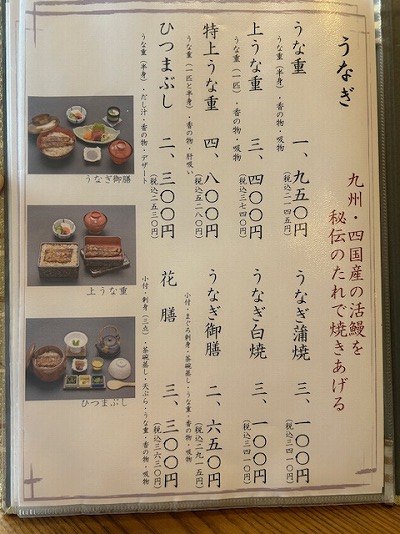 うなぎ
九州・四国産の活鰻を
秘伝のたれで焼きあげる
うな重 一、九五〇円
(税込二一四五円)
うな重(半身)・香の物・吸物
上うな重 三、四〇〇円
(税込三七四〇円)
うな重(一匹)・香の物・吸物
特上うな重 四、八〇〇円
(税込五二八〇円)
うな重(一匹と半身)・香の物・肝吸い
ひつまぶし 二、三〇〇円
(税込二五三〇円)
うな重(半身)・だし汁・香の物・デザート
うなぎ蒲焼 三、一〇〇円
(税込三四一〇円)
うなぎ白焼 三、一〇〇円
(税込三四一〇円)
うなぎ御膳 二、六五〇円
(税込二九一五円)
小付・まぐろ刺身・茶碗蒸し・うな重・香の物・吸物
花膳 三、三〇〇円
(税込三六三〇円)
小付・刺身(三点)・茶碗蒸し・天ぷら・うな重・香の物・吸物
うなぎ御膳
上うな重
ひつまぶし